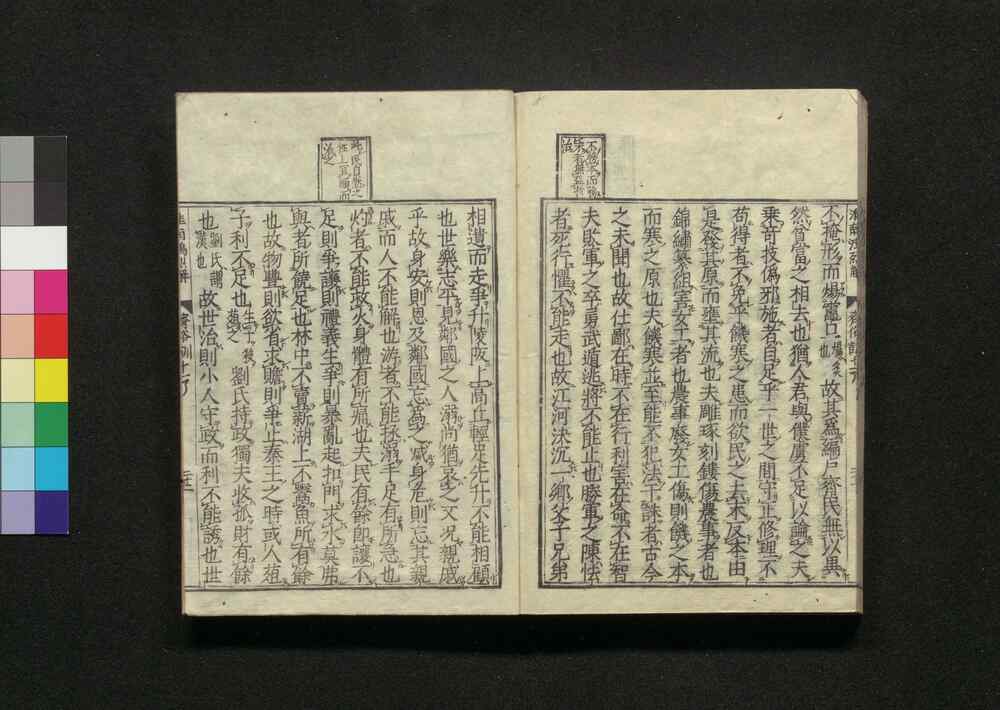 不掩形而煬竈口煬炙也故其爲編戶齊民無以異
然貧富之相去也猶人君與僕虜不足以論之夫
乗竒技僞邪施者自足乎一世之間守正修理不
苟得者不免乎饑寒之患而欲民之去末反本由
是發其原而壅其流也夫雕琢刻鏤傷農事者也
錦繡纂組害女工者也農事廢女工傷則饑之本
而寒之原也夫饑寒並至能不犯法干誅者古今
之未聞也故仕鄙在時不在行利害在命不在智
夫敗軍之卒勇武遁逃將不能止也勝軍之陳怯
者死行懼不能走也故江河決沉一鄉父子兄弟
相遺而走爭升陵阪上高丘輕足先升不能相顧
也世樂志平見鄰國之人溺尚猶哀之又况親戚
乎故身安則恩及鄰國志爲之滅身危則忘其親
戚而人不能解也游者不能拯溺手足有所急也
灼者不能救火身體有所痛也夫民有餘即讓不
足則爭讓則禮義生爭則暴亂起扣門求水莫弗
與者所饒足也林中不賣薪湖上不鬻魚所有餘
也故物豐則欲省求贍則爭止秦王之時或人葅
子利不足也劉氏持政獨夫收孤財有餘
也劉氏謂漢也故世治則小人守政而利不能誘也世